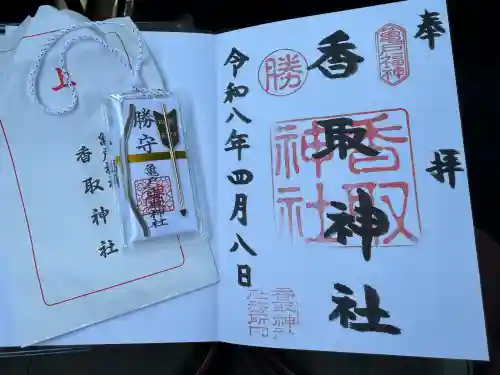 奉拝
亀戸香神
香取神社
勝
香取神社
令和八年四月八日
香取神社社務所印
上
亀戸鎮座
香取神社
勝守
亀戸
香取神社